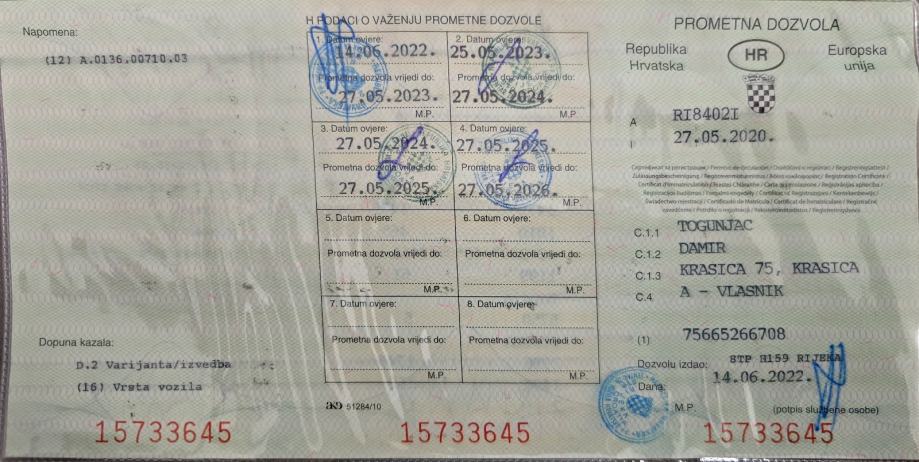 Napomena:
(12) A.0136.00710.03
Dopuna kazala:
D.2 Varijanta/izvedba
(16) Vrsta vozila
15733645
H PODACI O VAŽENJU PROMETNE DOZVOLE
1. Datum ovjere:
14.06.2022.
Prometna dozvola vrijedi do:
27.05.2023.
M.P.
2. Datum ovjere:
25.05.2023.
Prometna dozvola vrijedi do:
27.05.2024.
M.P.
3. Datum ovjere:
27.05.2024.
Prometna dozvola vrijedi do:
27.05.2025.
M.P.
4. Datum ovjere:
27.05.2025.
Prometna dozvola vrijedi do:
27.05.2026.
M.P.
5. Datum ovjere:
Prometna dozvola vrijedi do:
M.P.
6. Datum ovjere:
Prometna dozvola vrijedi do:
M.P.
7. Datum ovjere:
Prometna dozvola vrijedi do:
M.P.
8. Datum ovjere:
Prometna dozvola vrijedi do:
M.P.
51284/10
15733645
PROMETNA DOZVOLA
Republika Hrvatska
HR
Europska unija
A RI8402I
I 27.05.2020.
C.1.1 TOGUNJAC
C.1.2 DAMIR
C.1.3 KRASICA 75, KRASICA
C.4 A - VLASNIK
(1) 75665266708
Dozvolu izdao: STP H159 RIJEKA
Dana: 14.06.2022.
M.P. (potpis službene osobe)
15733645